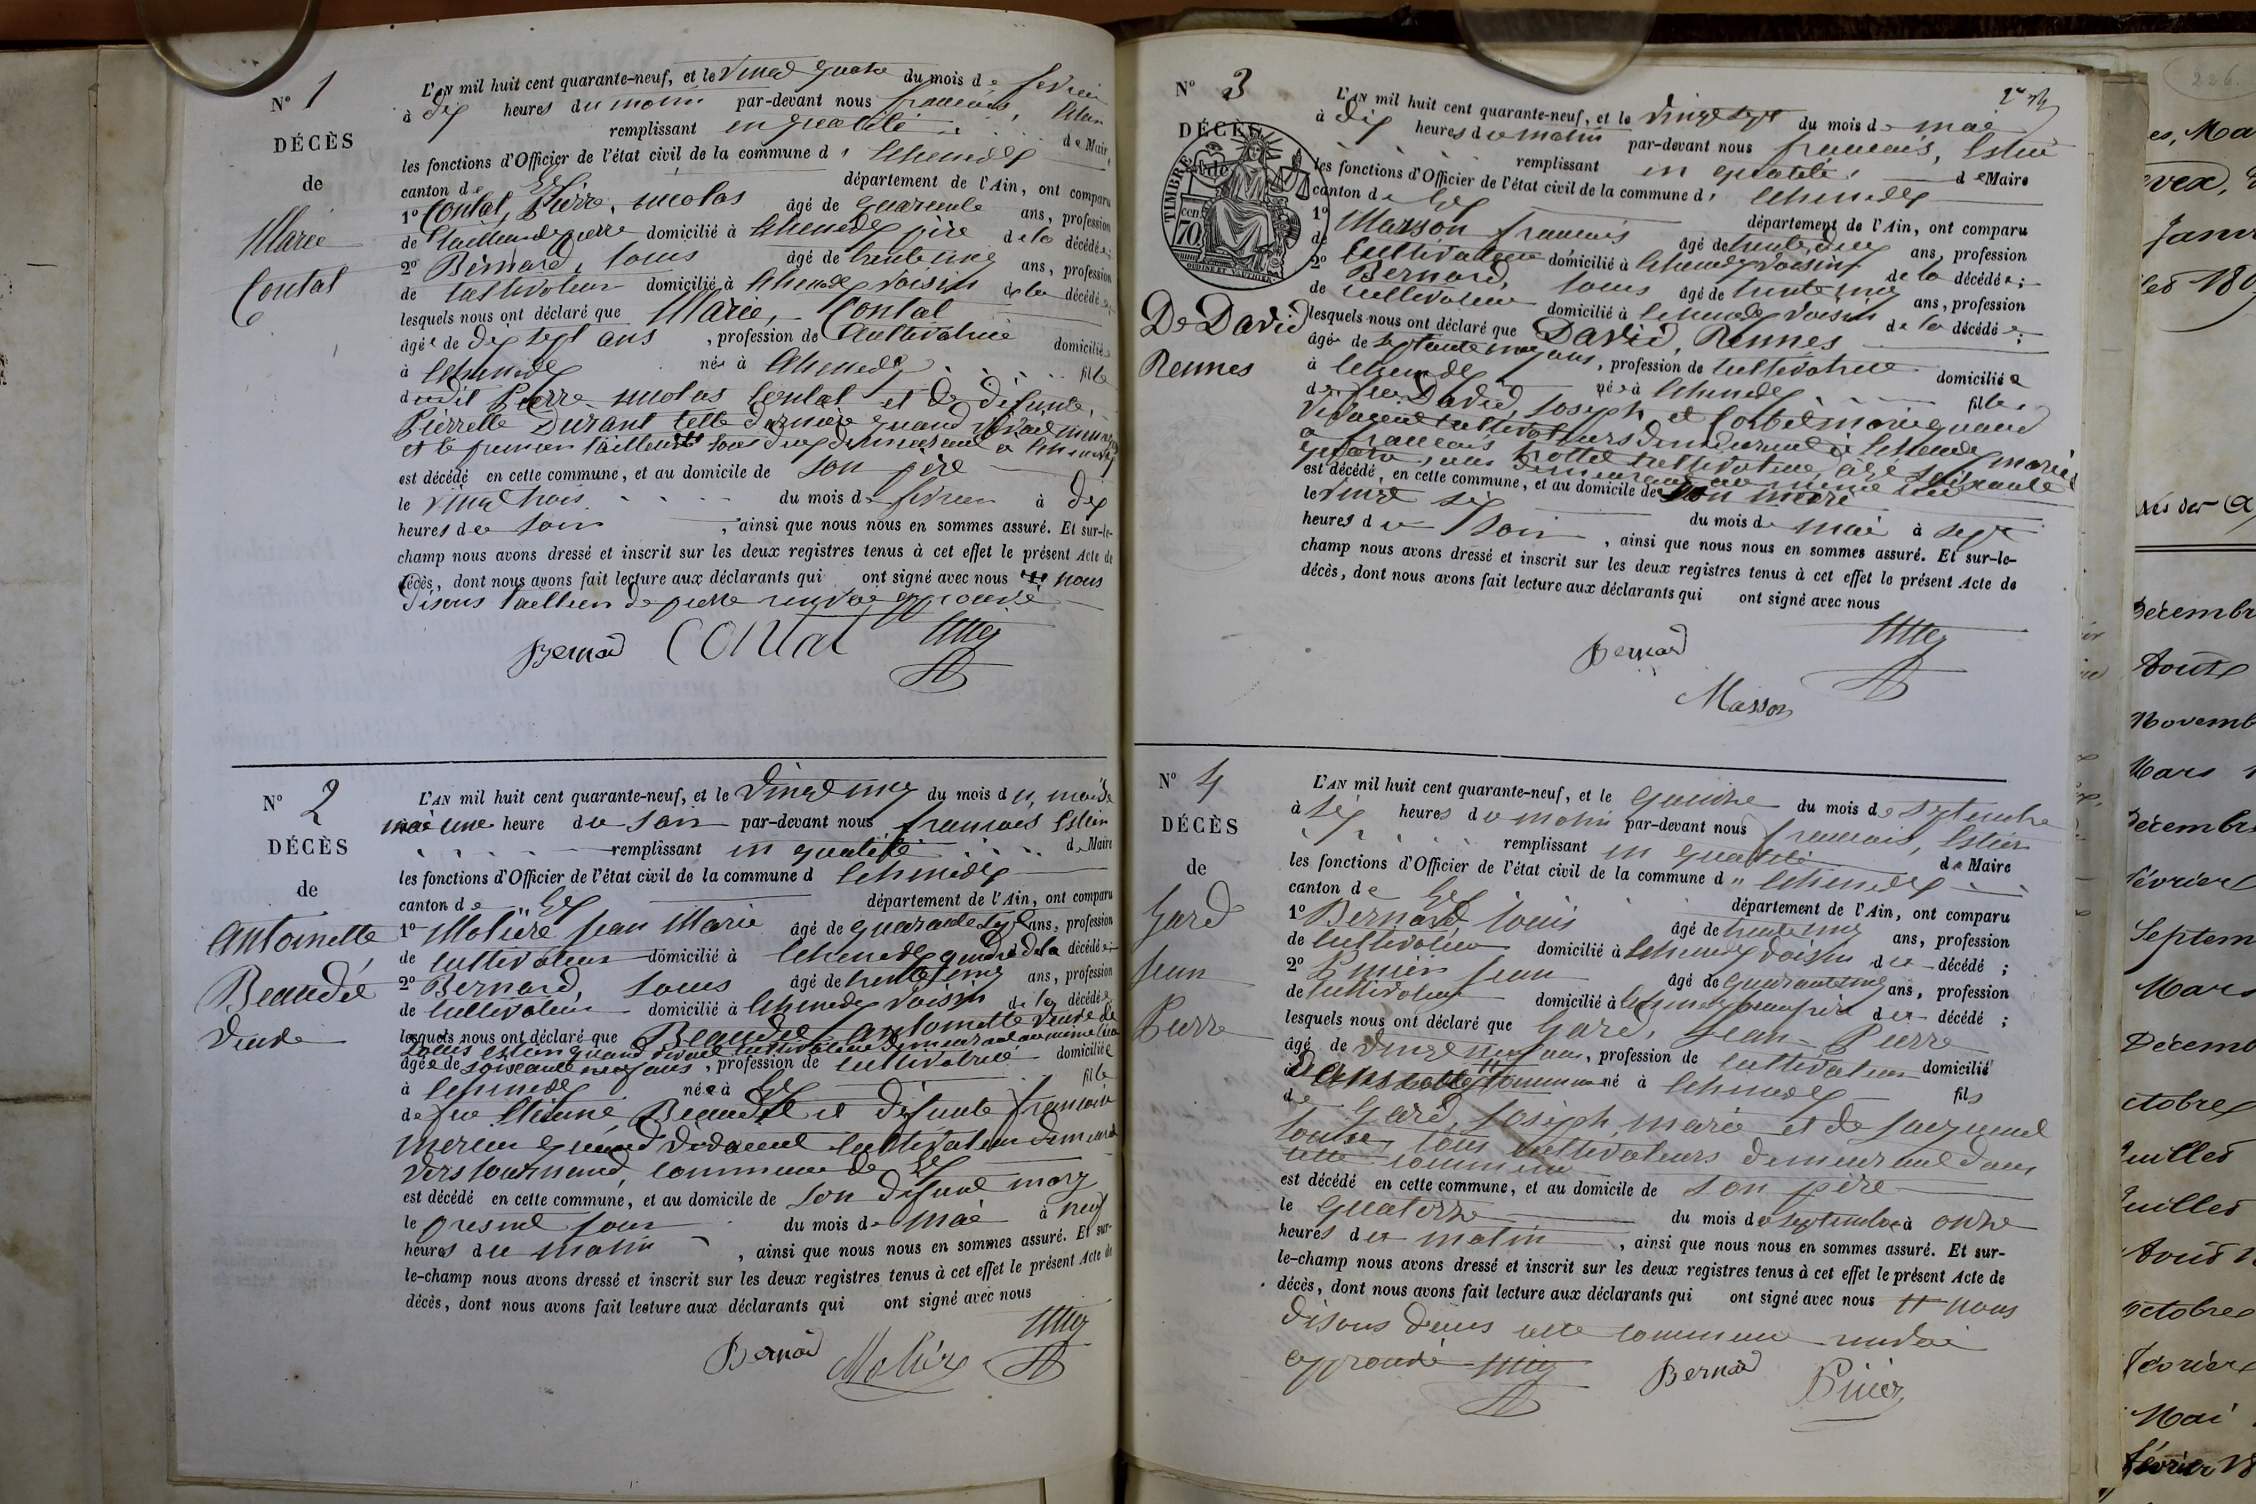 N° 1
DÉCÈS
de
Marie
Contat
L'AN mil huit cent quarante-neuf, et le vingt quatre du mois de février
à dix heures du matin par-devant nous francois, Estier
remplissant en qualité de Maire
les fonctions d'Officier de l'état civil de la commune d'Echenevex
canton de Gex département de l'Ain, ont comparu
1° Contat, Pierre, nicolas âgé de quarante ans, profession
de tailleur de pierre domicilié à Echenevex père de la décédée;
2° Bernard, Louis âgé de trente cinq ans, profession
de cultivateur domicilié à Echenevex voisin de la décédée;
lesquels nous ont déclaré que Marie, Contat
âgée de dix sept ans, profession de Cultivatrice domiciliée
à Echenevex née à Echenevex fille
dudit Pierre nicolas Contat et de défunte,
Pierrette Durant cette dernière quand vivait
et le premier tailleur tous deux demeurant à Echenevex
est décédé en cette commune, et au domicile de son père
le vingt trois du mois de février à dix
heures du soir, ainsi que nous nous en sommes assuré. Et sur-le-
champ nous avons dressé et inscrit sur les deux registres tenus à cet effet le présent Acte de
décès, dont nous avons fait lecture aux déclarants qui ont signé avec nous nous
disons tailleur de pierre renvoi approuvé
Bernard Contat
N° 2
DÉCÈS
de
Antoinette
Beaudet
veuve
L'AN mil huit cent quarante-neuf, et le vingt cinq du mois du mois de
mai une heure du soir par-devant nous francois Estier
remplissant en qualité de Maire
les fonctions d'Officier de l'état civil de la commune d Echenevex
canton de Gex département de l'Ain, ont comparu
1° Molière Jean Marie âgé de quarante sept ans, profession
de cultivateur domicilié à Echenevex gendre de la décédée;
2° Bernard, Louis âgé de trente cinq ans, profession
de cultivateur domicilié à Echenevex voisin de la décédée
lesquels nous ont déclaré que Beaudet antoinette veuve de
Louis estier quand vivait cultivateur demeurant au même lieu
âgée de soixante neuf ans, profession de cultivatrice domiciliée
à Echenevex née à Gex fille
de feu Etienne Beaudet et défunte francoise
Mercier quand vivaient cultivateurs demeurant
vers tournand, commune de Gex
est décédé en cette commune, et au domicile de son défunt mary
le present jour du mois de mai à neuf
heures du matin, ainsi que nous nous en sommes assuré. Et sur-
le-champ nous avons dressé et inscrit sur les deux registres tenus à cet effet le présent Acte de
décès, dont nous avons fait lecture aux déclarants qui ont signé avec nous
Bernard Molière
N° 3
DÉCÈS
de
TIMBRE
cen. 70
De David
Rennes
L'AN mil huit cent quarante-neuf, et le vingt sept du mois de mai
à dix heures du matin par-devant nous francois, Estier
remplissant en qualité de Maire
les fonctions d'Officier de l'état civil de la commune d' Echenevex
canton de Gex département de l'Ain, ont comparu
1° Masson francois âgé de trente deux ans, profession
de Cultivateur domicilié à Echenevex voisin de la décédée;
2° Bernard, Louis âgé de trente cinq ans, profession
de cultivateur domicilié à Echenevex voisin de la décédée;
lesquels nous ont déclaré que David, Rennes
âgée de septante cinq ans, profession de cultivatrice domiciliée
à Echenevex née à Echenevex fille
de feu David, Joseph et marie quand
vivaient cultivateurs demeurant à Echenevex mariée
à francois cultivateur âgé soixante
quatre ans demeurant au même lieu
est décédé, en cette commune, et au domicile de son mari
le vingt six du mois de mai à sept
heures du soir, ainsi que nous nous en sommes assuré. Et sur-le-
champ nous avons dressé et inscrit sur les deux registres tenus à cet effet le présent Acte de
décès, dont nous avons fait lecture aux déclarants qui ont signé avec nous
Bernard
Masson
N° 4
DÉCÈS
de
Gard
Jean
Pierre
L'AN mil huit cent quarante-neuf, et le quinze du mois de septembre
à six heures du matin par-devant nous francois, Estier
remplissant en qualité de Maire
les fonctions d'Officier de l'état civil de la commune d' Echenevex
canton de Gex département de l'Ain, ont comparu
1° Bernard, Louis âgé de trente cinq ans, profession
de cultivateur domicilié à Echenevex voisin du décédé;
2° Jean âgé de quarante cinq ans, profession
de cultivateur domicilié à Echenevex du décédé;
lesquels nous ont déclaré que Gard, Jean-Pierre
âgé de vingt neuf ans, profession de cultivateur domicilié
dans cette commune né à Echenevex fils
de Gard, Joseph marie et de
Louise, tous cultivateurs demeurant dans
cette commune
est décédé en cette commune, et au domicile de son père
le quatorze du mois de septembre à onze
heures du matin, ainsi que nous nous en sommes assuré. Et sur-
le-champ nous avons dressé et inscrit sur les deux registres tenus à cet effet le présent Acte de
décès, dont nous avons fait lecture aux déclarants qui ont signé avec nous nous
disons dans cette commune renvoi
approuvé Bernard
226.
Décembre
Août
Novemb
Mars
Décembre
février
Septem
Mars
Décemb
octobre
Juillet
Juillet
Août
octobre
février
Mai
février 18